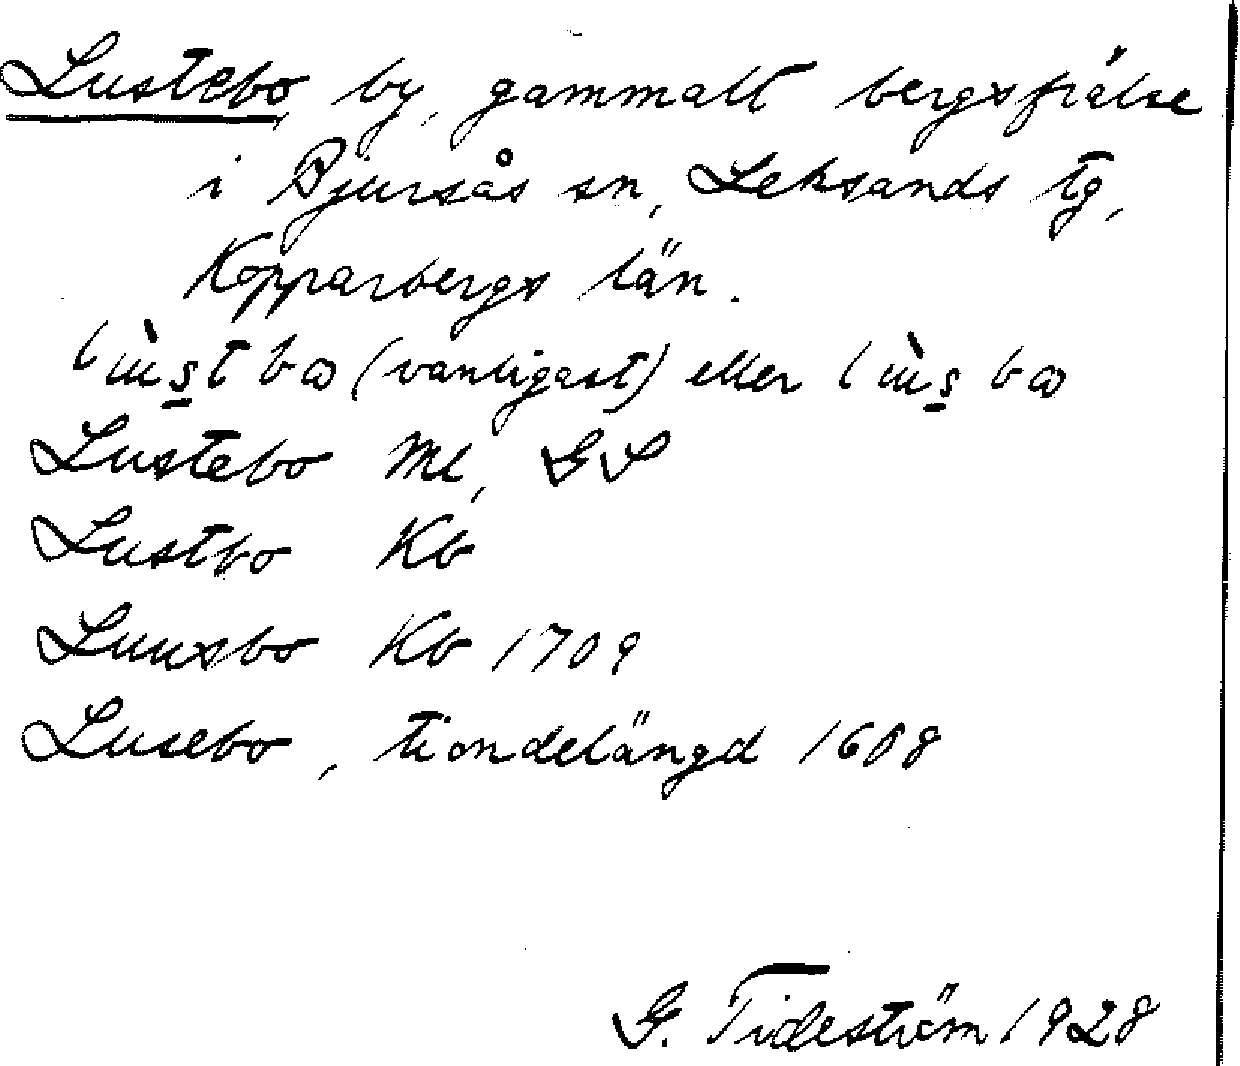 Lustebo, by, gammalt bergsfrälse
i Bjursås sn, Leksands tg,
Kopparbergs län.
(vanligast) eller
Lustebo Ml, GS
Lustbo Kb
Luusbo Kb 1709
Lusebo, tiondelängd 1608
G. Tideström 1928